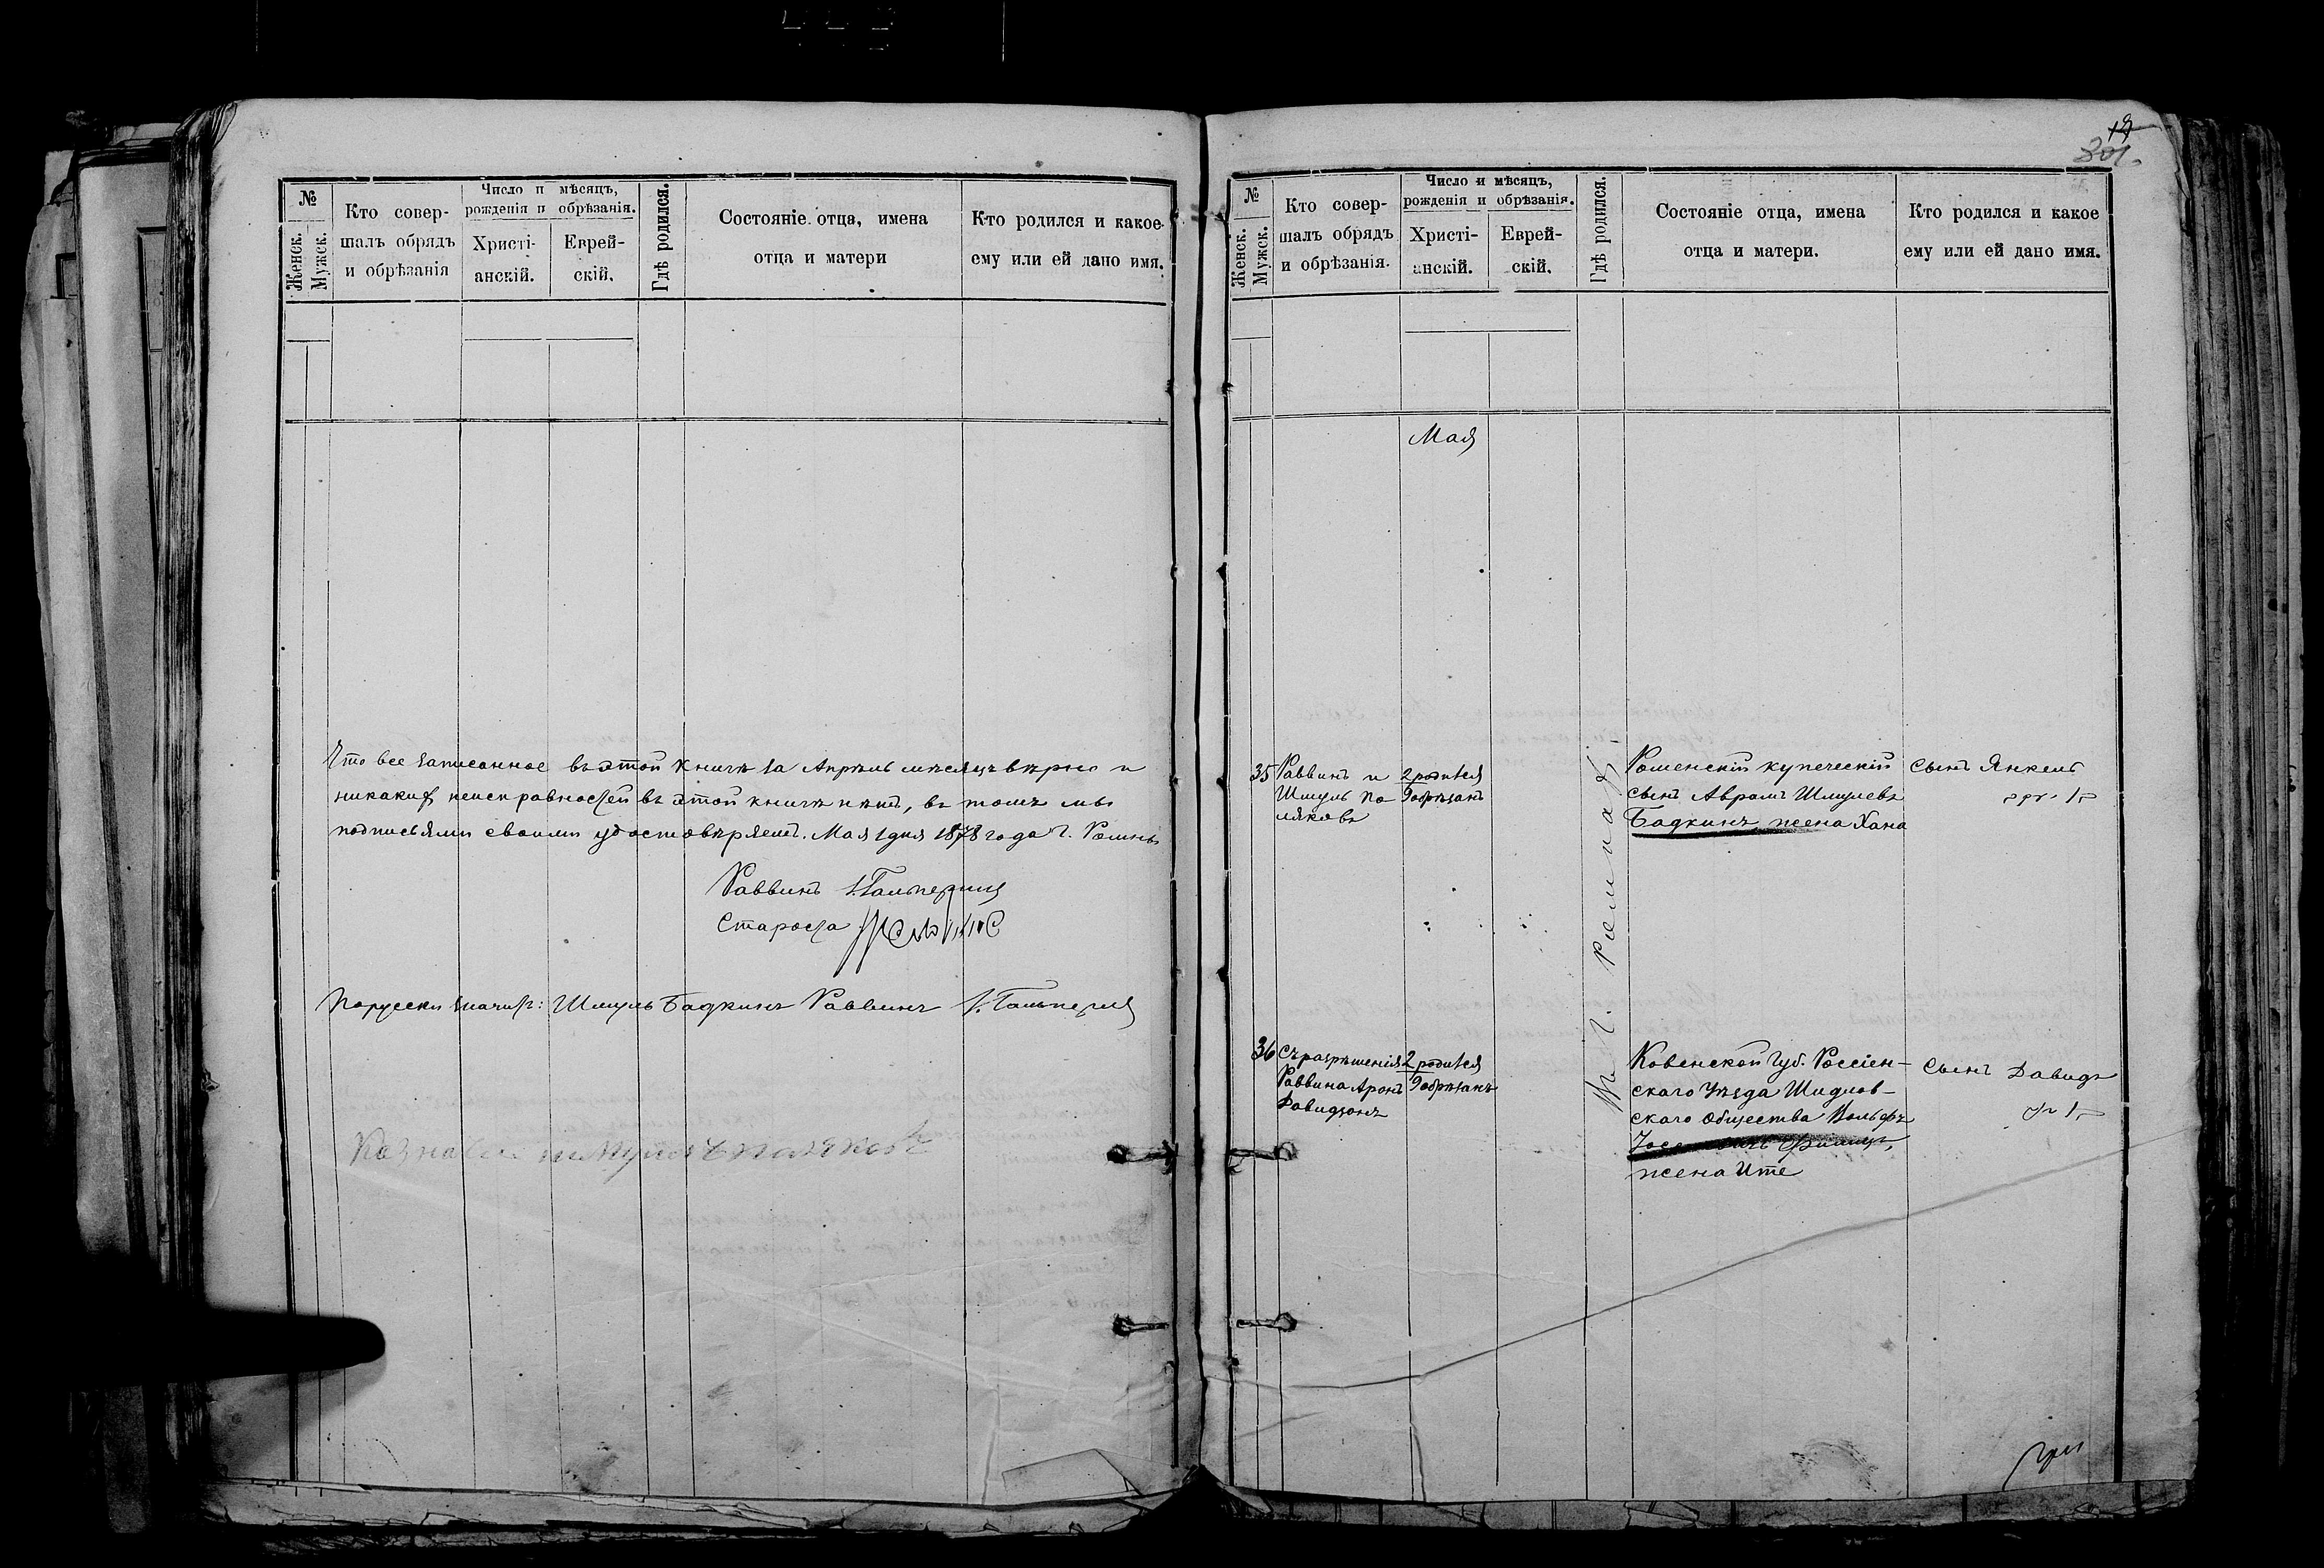 №
Женск.
Мужск.
Кто совер-
шалъ обрядъ
и обрѣзанія
Число и мѣсяцъ,
рожденія и обрѣзанія.
Христі-
анскій.
Еврей-
скій.
Гдѣ родился.
Состояніе отца, имена
отца и матери
Кто родился и какое
ему или ей дано имя.
Что все записанное въ этой книгѣ за Апрѣль мѣсяцъ вѣрно и
никакихъ неисправностей въ этой книгѣ нѣтъ, въ томъ мы
подписьями своими удостовѣряемъ. Мая 1 дня 1878 года г. Ромны
Раввинъ Гальперинъ
Староста
Порусски значитъ: Шмуль Бадкинъ Раввинъ Гальперинъ
19
301.
№
Женск.
Мужск.
Кто совер-
шалъ обрядъ
и обрѣзанія.
Число и мѣсяцъ,
рожденія и обрѣзанія.
Христі-
анскій.
Еврей-
скій.
Гдѣ родился.
Состояніе отца, имена
отца и матери.
Кто родился и какое
ему или ей дано имя.
Мая
35
Раввинъ и
Шмуль По
ляковъ
2 родился
9 обрѣзанъ
Роменскій купеческій
сынъ Аврамъ Шмулевъ
Бадкинъ, жена Хана
сынъ Янкель
36
Съ разрѣшенія
Раввина Аронъ
Давидзонъ
2 родился
9 обрѣзанъ
Ковенской Губ. Россіен-
скаго Уѣзда Шидлов-
скаго Общества Вольфъ
жена Ите
сынъ Давидъ